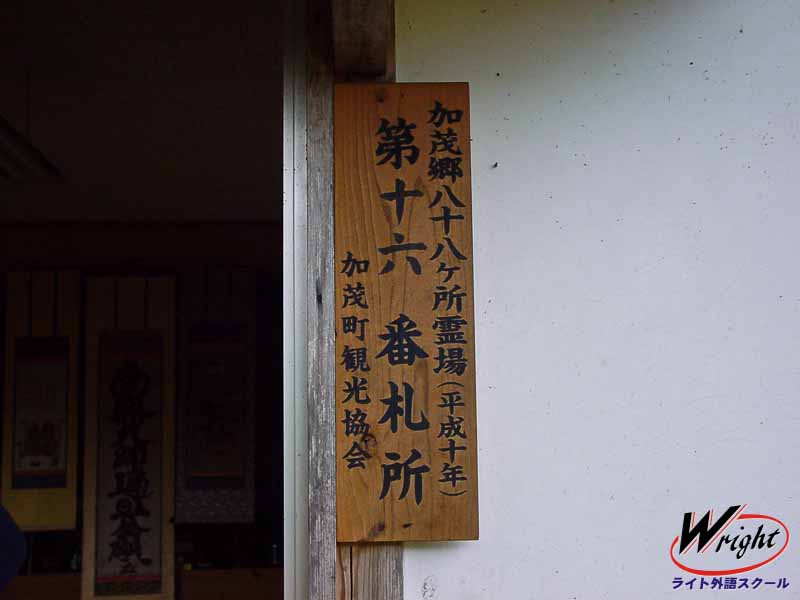 加茂郷八十八ヶ所霊場（平成十年）
第十六番札所
加茂町観光協会
南無大師遍照金剛
Wright
ライト外語スクール